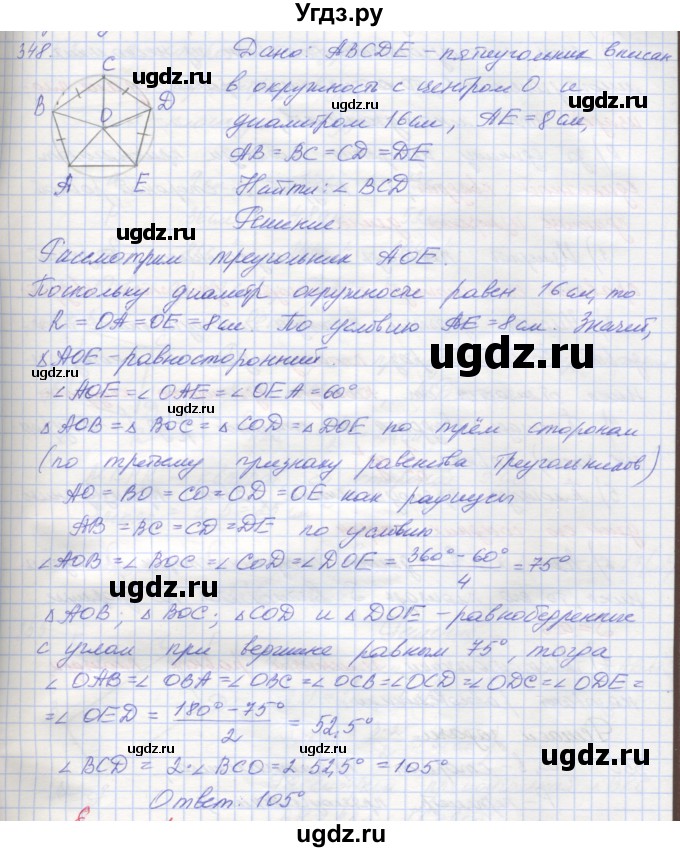 Угдз.ру
348.
Дано: ABCDE - пятиугольник вписан
в окружность с центром O и
диаметром 16 см, AE = 8 см,
AB = BC = CD = DE
Найти: ∠ BCD
C
B
D
O
A
E
Решение
Рассмотрим треугольник AOE.
Поскольку диаметр окружности равен 16 см, то
R = OA = OE = 8 см. По условию AE = 8 см. Значит,
△ AOE - равносторонний.
∠ AOE = ∠ OAE = ∠ OEA = 60°
△ AOB = △ BOC = △ COD = △ DOE по трём сторонам
(по третьему признаку равенства треугольников)
AO = BO = CO = OD = OE как радиусы
AB = BC = CD = DE по условию
∠ AOB = ∠ BOC = ∠ COD = ∠ DOE = (360° - 60°)/4 = 75°
△ AOB; △ BOC; △ COD и △ DOE - равнобедренник
с углом при вершине равным 75°, тогда
∠ OAB = ∠ OBA = ∠ OBC = ∠ OCB = ∠ OCD = ∠ ODC = ∠ ODE =
= ∠ OED = (180° - 75°)/2 = 52,5°
∠ BCD = 2·∠ BCO = 2·52,5° = 105°
Ответ: 105°
ugdz.ru
ugdz.ru
ugdz.ru
ugdz.ru
ugdz.ru
ugdz.ru
ugdz.ru
ugdz.ru
ugdz.ru
ugdz.ru
ugdz.ru
ugdz.ru
ugdz.ru
ugdz.ru